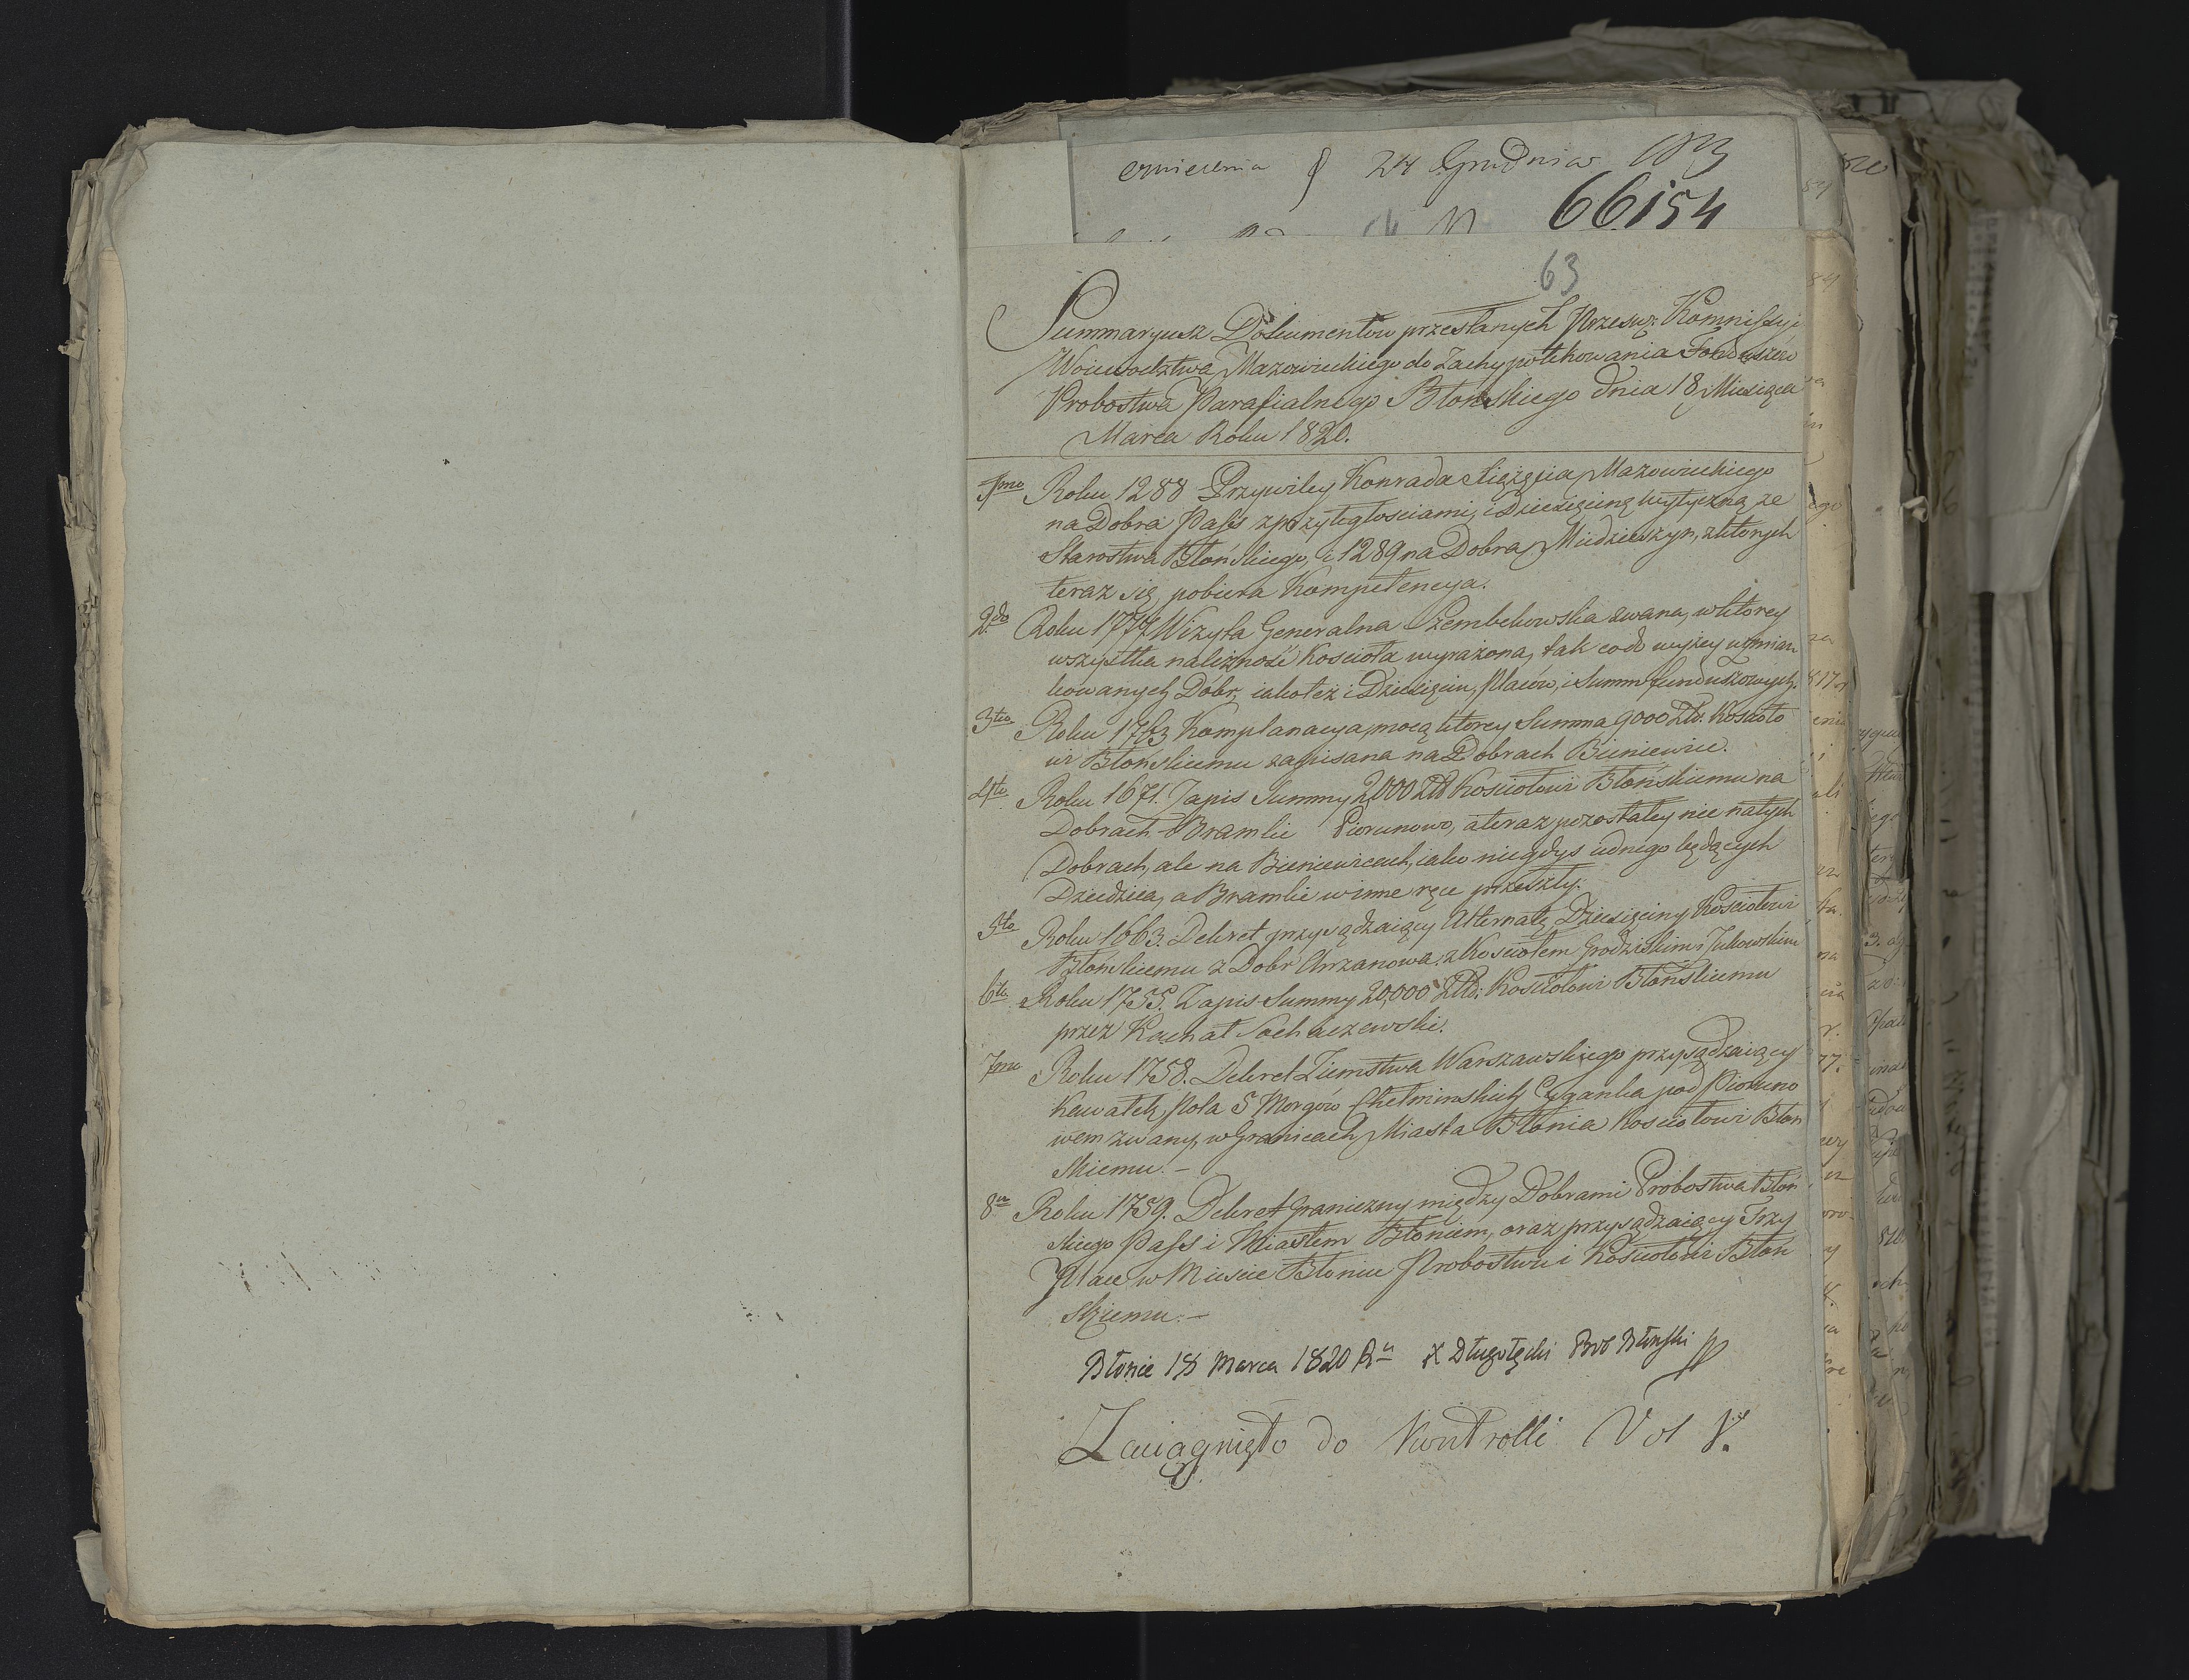 24 Grudnia 1823
66154
63
Summaryusz Dokumentow przesłanych Przesw: Kommissyi
Woiewodztwa Mazowieckiego do Zachypotekowania Fonduszow
Probostwa Parafialnego Błonskiego dnia 18 Miesiąca
Marca Roku 1820.
1mo Roku 1288 Przywiley Konrada Xiążęcia Mazowieckiego
na Dobra Pass z przyległosciami, i Dziesięcinę wytyczną ze
Starostwa Błońskiego, i 1289 na Dobra Miedzieszyn, z których
teraz się pobiera Kompetencya.
2do Roku 1777 Wizyta Generalna Szembekowska zwana, w którey
wszystka należność Kościoła wyrażona, tak co do wyżey wzmian
kowanych Dóbr, iako też i Dziesięcin, Placów, i Summ funduszowych.
3tio Roku 1763 Komplanacya, mocą którey Summa 9000 Złt. Kościoło
wi Błońskiemu zapisana na Dobrach Bieniewice.
4to Roku 1671. Zapis Summy 2,000 Złt Kościołowi Błońskiemu na
Dobrach Bramki Piorunowo, a teraz pozostałey nie na tych
Dobrach, ale na Bieniewicach, iako niegdys iednego będących
Dziedzica, a Bramki w inne ręce przeszły.
5to Roku 1663. Dekret przysądzaiący Alternatę Dziesięciny Kościołowi
Błońskiemu z Dobr Chrzanowa, z Kościołem Grodziskim i Żukowskim
6to Roku 1755. Zapis Summy 20,000 Złt: Kościołowi Błońskiemu
przez Kachał Sochaczewski.
7mo Roku 1758. Dekret Ziemstwa Warszawskiego przysądzaiący
Kawałek Pola 5 Morgów Chełmińskich Cyganka pod Pioruno
wem zwany, w Granicach Miasta Błonia Kościołowi Błon
skiemu. –
8vo Roku 1759. Dekret Graniczny między Dobrami Probostwa Błoń
skiego Pass i Miastem Błoniem, oraz przysądzaiący Trzy
Place w Miescie Błoniu Probostwu i Kościołowi Błon
skiemu. –
Błonie 18 Marca 1820 Ru X Długołęcki Prob Błonski
Zaciągnięto do Kontrolli Vol V.